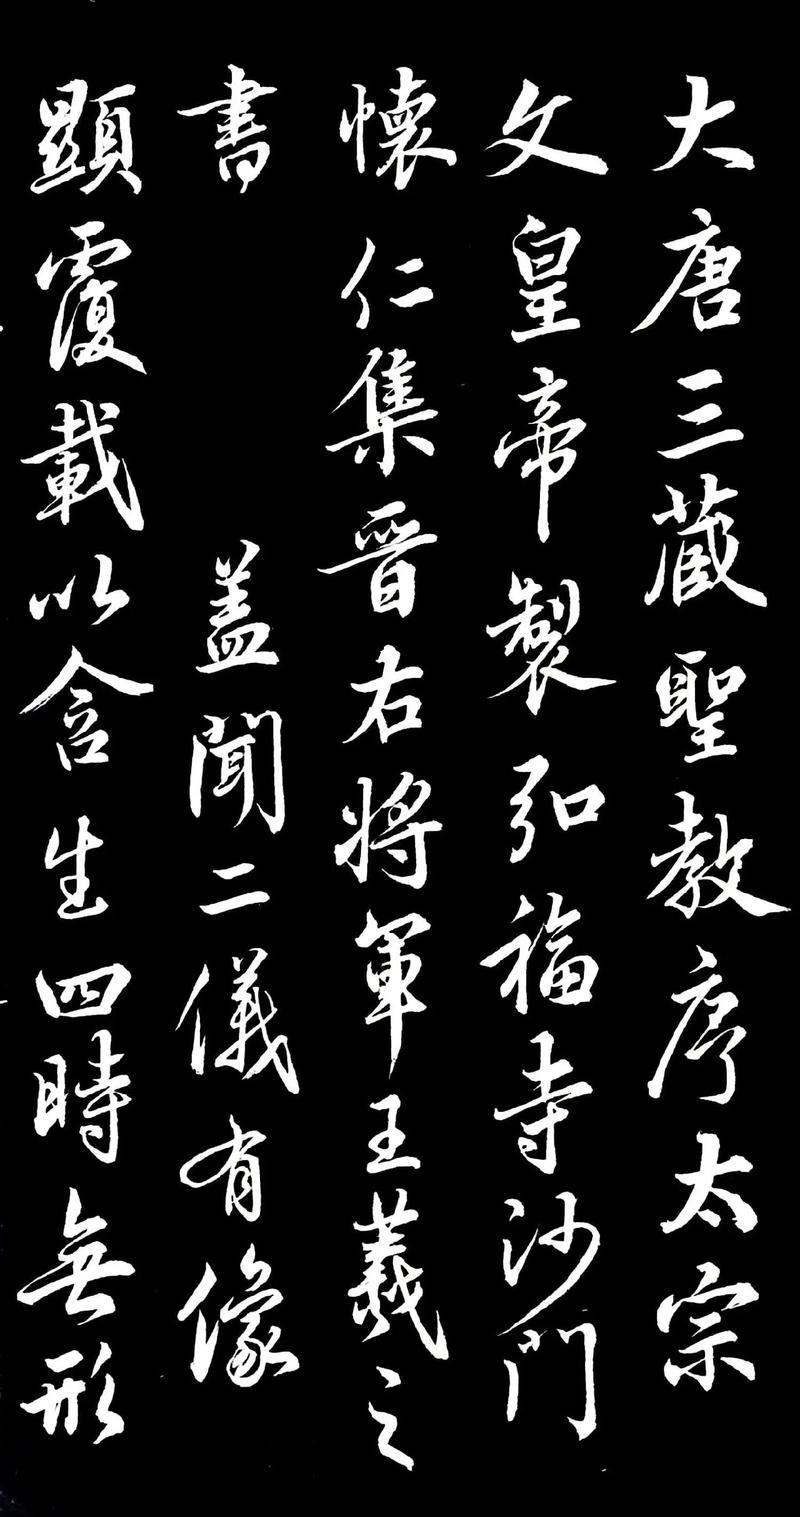 大唐三藏聖教序太宗
文皇帝製弘福寺沙門
懷仁集晉右將軍王羲之
書 盖聞二儀有像
顯覆載以含生四時無形